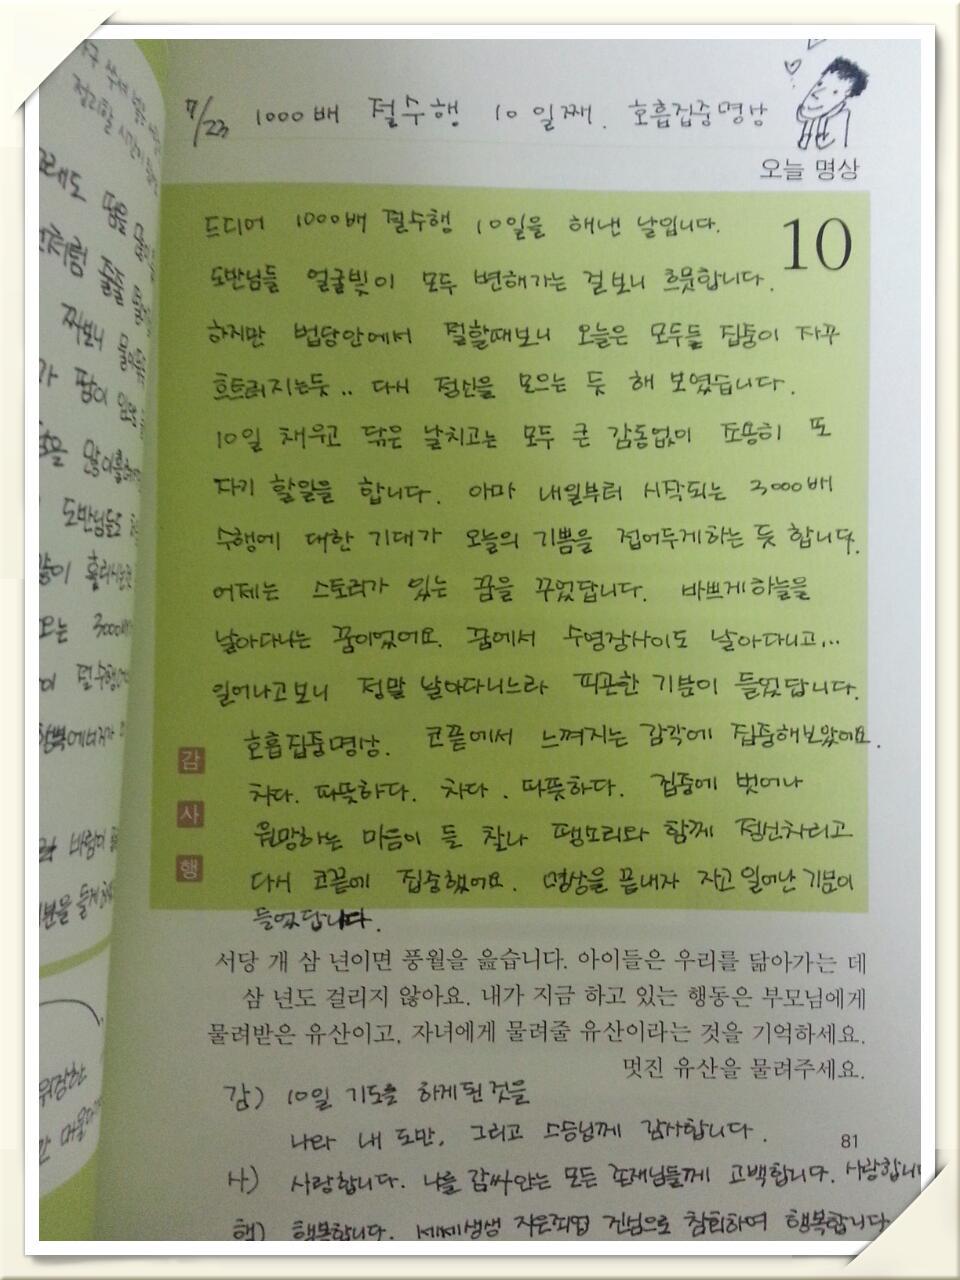 7/23 1000배 절수행 10일째. 호흡집중명상
오늘 명상
10
드디어 1000배 절수행 10일을 해낸 날입니다.
도반님들 얼굴빛이 모두 변해가는 걸 보니 흐뭇합니다.
하지만 법당안에서 절할때보니 오늘은 모두들 집중이 자꾸
흐트러지는듯.. 다시 정신을 모으는 듯 해 보였습니다.
10일 채우고 닦은 날치고는 모두 큰 감동없이 조용히 또
자기 할일을 합니다. 아마 내일부터 시작되는 3000배
수행에 대한 기대가 오늘의 기쁨을 접어두게하는 듯 합니다.
어제는 스토리가 있는 꿈을 꾸었답니다. 바쁘게하늘을
날아다니는 꿈이었어요. 꿈에서 수영장사이도 날아다니고...
일어나고보니 정말 날아다니느라 피곤한 기분이 들었답니다.
호흡집중명상. 코끝에서 느껴지는 감각에 집중해보았어요.
차다. 따뜻하다. 차다. 따뜻하다. 집중에 벗어나
원망하는 마음이 들 찰나 땡소리와 함께 정신차리고
다시 코끝에 집중했어요. 명상을 끝내자 자고 일어난 기분이
들었답니다.
감
사
행
서당 개 삼 년이면 풍월을 읊습니다. 아이들은 우리를 닮아가는 데
삼 년도 걸리지 않아요. 내가 지금 하고 있는 행동은 부모님에게
물려받은 유산이고, 자녀에게 물려줄 유산이라는 것을 기억하세요.
멋진 유산을 물려주세요.
감) 10일 기도를 하게된것을
나와 내 도반, 그리고 스승님께 감사합니다.
81
사) 사랑합니다. 나를 감싸안는 모든 존재님들께 고백합니다. 사랑합니다
행) 행복합니다. 세세생생 지은죄업 진심으로 참회하여 행복합니다